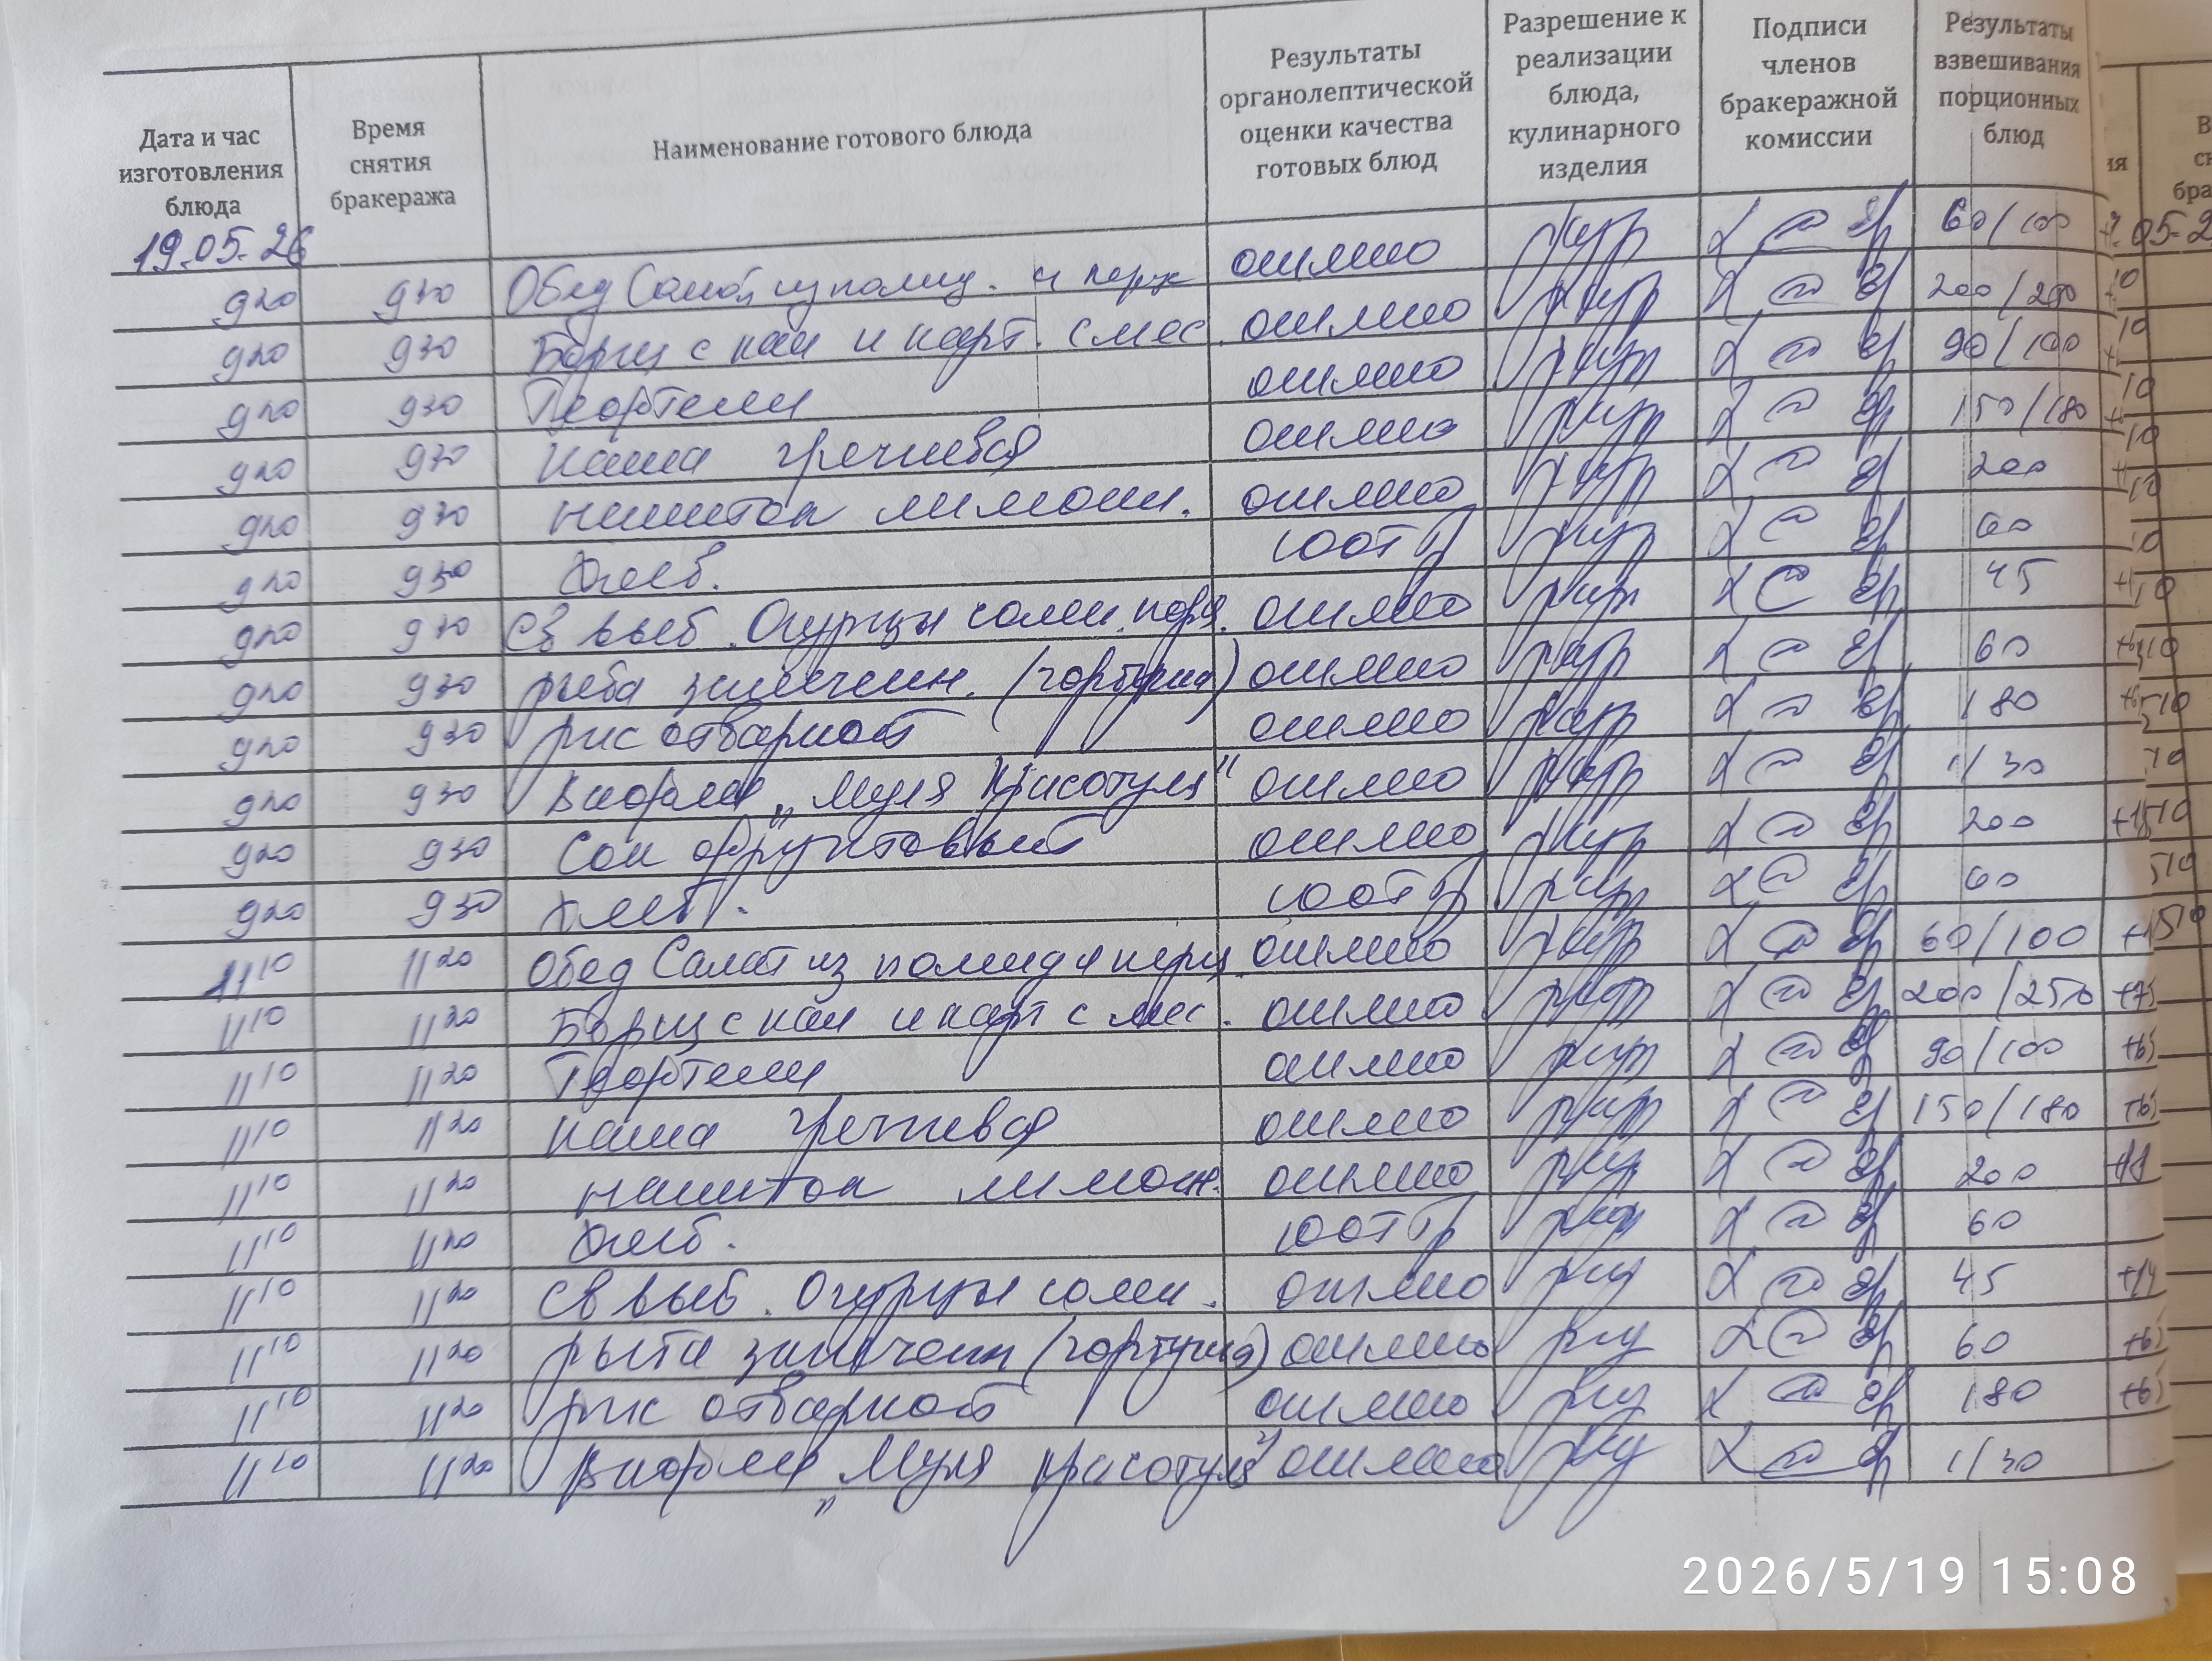 Дата и час изготовления блюда | Время снятия бракеража | Наименование готового блюда | Результаты органолептической оценки качества готовых блюд | Разрешение к реализации блюда, кулинарного изделия | Подписи членов бракеражной комиссии | Результаты взвешивания порционных блюд
19.05.26 60/100
9 20 9 30 Обед Салат из помид. и перц отлично 200/200
9 20 9 30 Борщ с кап и карт. с мяс. отлично 90/100
9 20 9 30 Тефтели отлично 150/180
9 20 9 30 Каша гречневая отлично 200
9 20 9 30 напиток лимонн. отлично 60
9 20 9 30 Хлеб. соотв 45
9 20 9 30 Св выб. Огурцы солен. порц. отлично 60
9 20 9 30 рыба запечен. (горбуша) отлично 180
9 20 9 30 рис отварной отлично 1/30
9 20 9 30 Вафли „Муля Красотуля" отлично 200
9 20 9 30 Сок фруктовый отлично 60
9 20 9 30 Хлеб. соотв
11 10 11 20 Обед Салат из помид и перц. отлично 60/100
11 10 11 20 Борщ с кап и карт с мяс. отлично 200/250
11 10 11 20 Тефтели отлично 90/100
11 10 11 20 каша гречневая отлично 150/180
11 10 11 20 напиток лимон. отлично 200
11 10 11 20 Хлеб. соотв 60
11 10 11 20 Св выб. Огурцы солен. отлично 45
11 10 11 20 рыба запечен (горбуша) отлично 60
11 10 11 20 рис отварной отлично 180
11 10 11 20 Вафли „Муля красотуля" отлично 1/30
2026/5/19 15:08